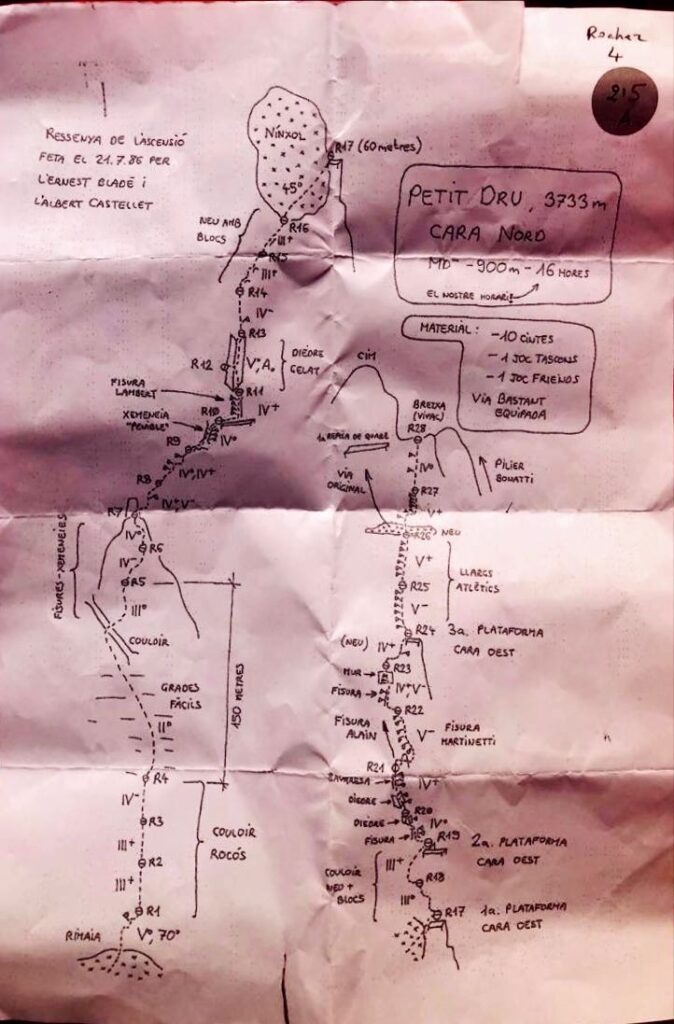 Rocher
4
RESSENYA DE L'ASCENSIÓ
FETA EL 21.7.86 PER
L'ERNEST BLADÉ i
L'ALBERT CASTELLET
PETIT DRU, 3733m
CARA NORD
MD⁻ -900m - 16 HORES
EL NOSTRE HORARI
MATERIAL:
-10 CINTES
-1 JOC TASCONS
-1 JOC FRIENDS
VIA BASTANT
EQUIPADA
NÍNXOL
45°
R17 (60 metres)
NEU AMB
BLOCS
R16
III+
R15
III+
R14
IV-
R13
R12
V°, A.
DIEDRE
GELAT
FISURA
LAMBERT
R11
IV+
XEMENEIA
"PENIBLE"
R10
IV°
R9
IV°, IV+
R8
IV+, V-
R7
FISURES-XEMENEIES
IV°
R6
IV-
R5
III°
COULOIR
150 METRES
GRADES
FÀCILS
II°
R4
IV-
R3
III+
R2
III+
COULOIR
ROCÓS
R1
RIMAIA
V°, 70°
CIM
BRETXA
(VIVAC)
R28
IV°
PILIER
BONATTI
VIA
ORIGINAL
R27
V+
NEU
R26
V+
R25
V-
LLARGS
ATLÈTICS
R24
3a. PLATAFORMA
CARA OEST
(NEU)
IV+
R23
MUR
FISURA
IV+, V-
R22
FISURA
ALAIN
V-
FISURA
MARTINETTI
R21
IV+
DIEDRE
R20
DIEDRE
IV°
FISURA
R19
2a. PLATAFORMA
CARA OEST
COULOIR
NEU +
BLOCS
III+
R18
III°
R17
1a. PLATAFORMA
CARA OEST